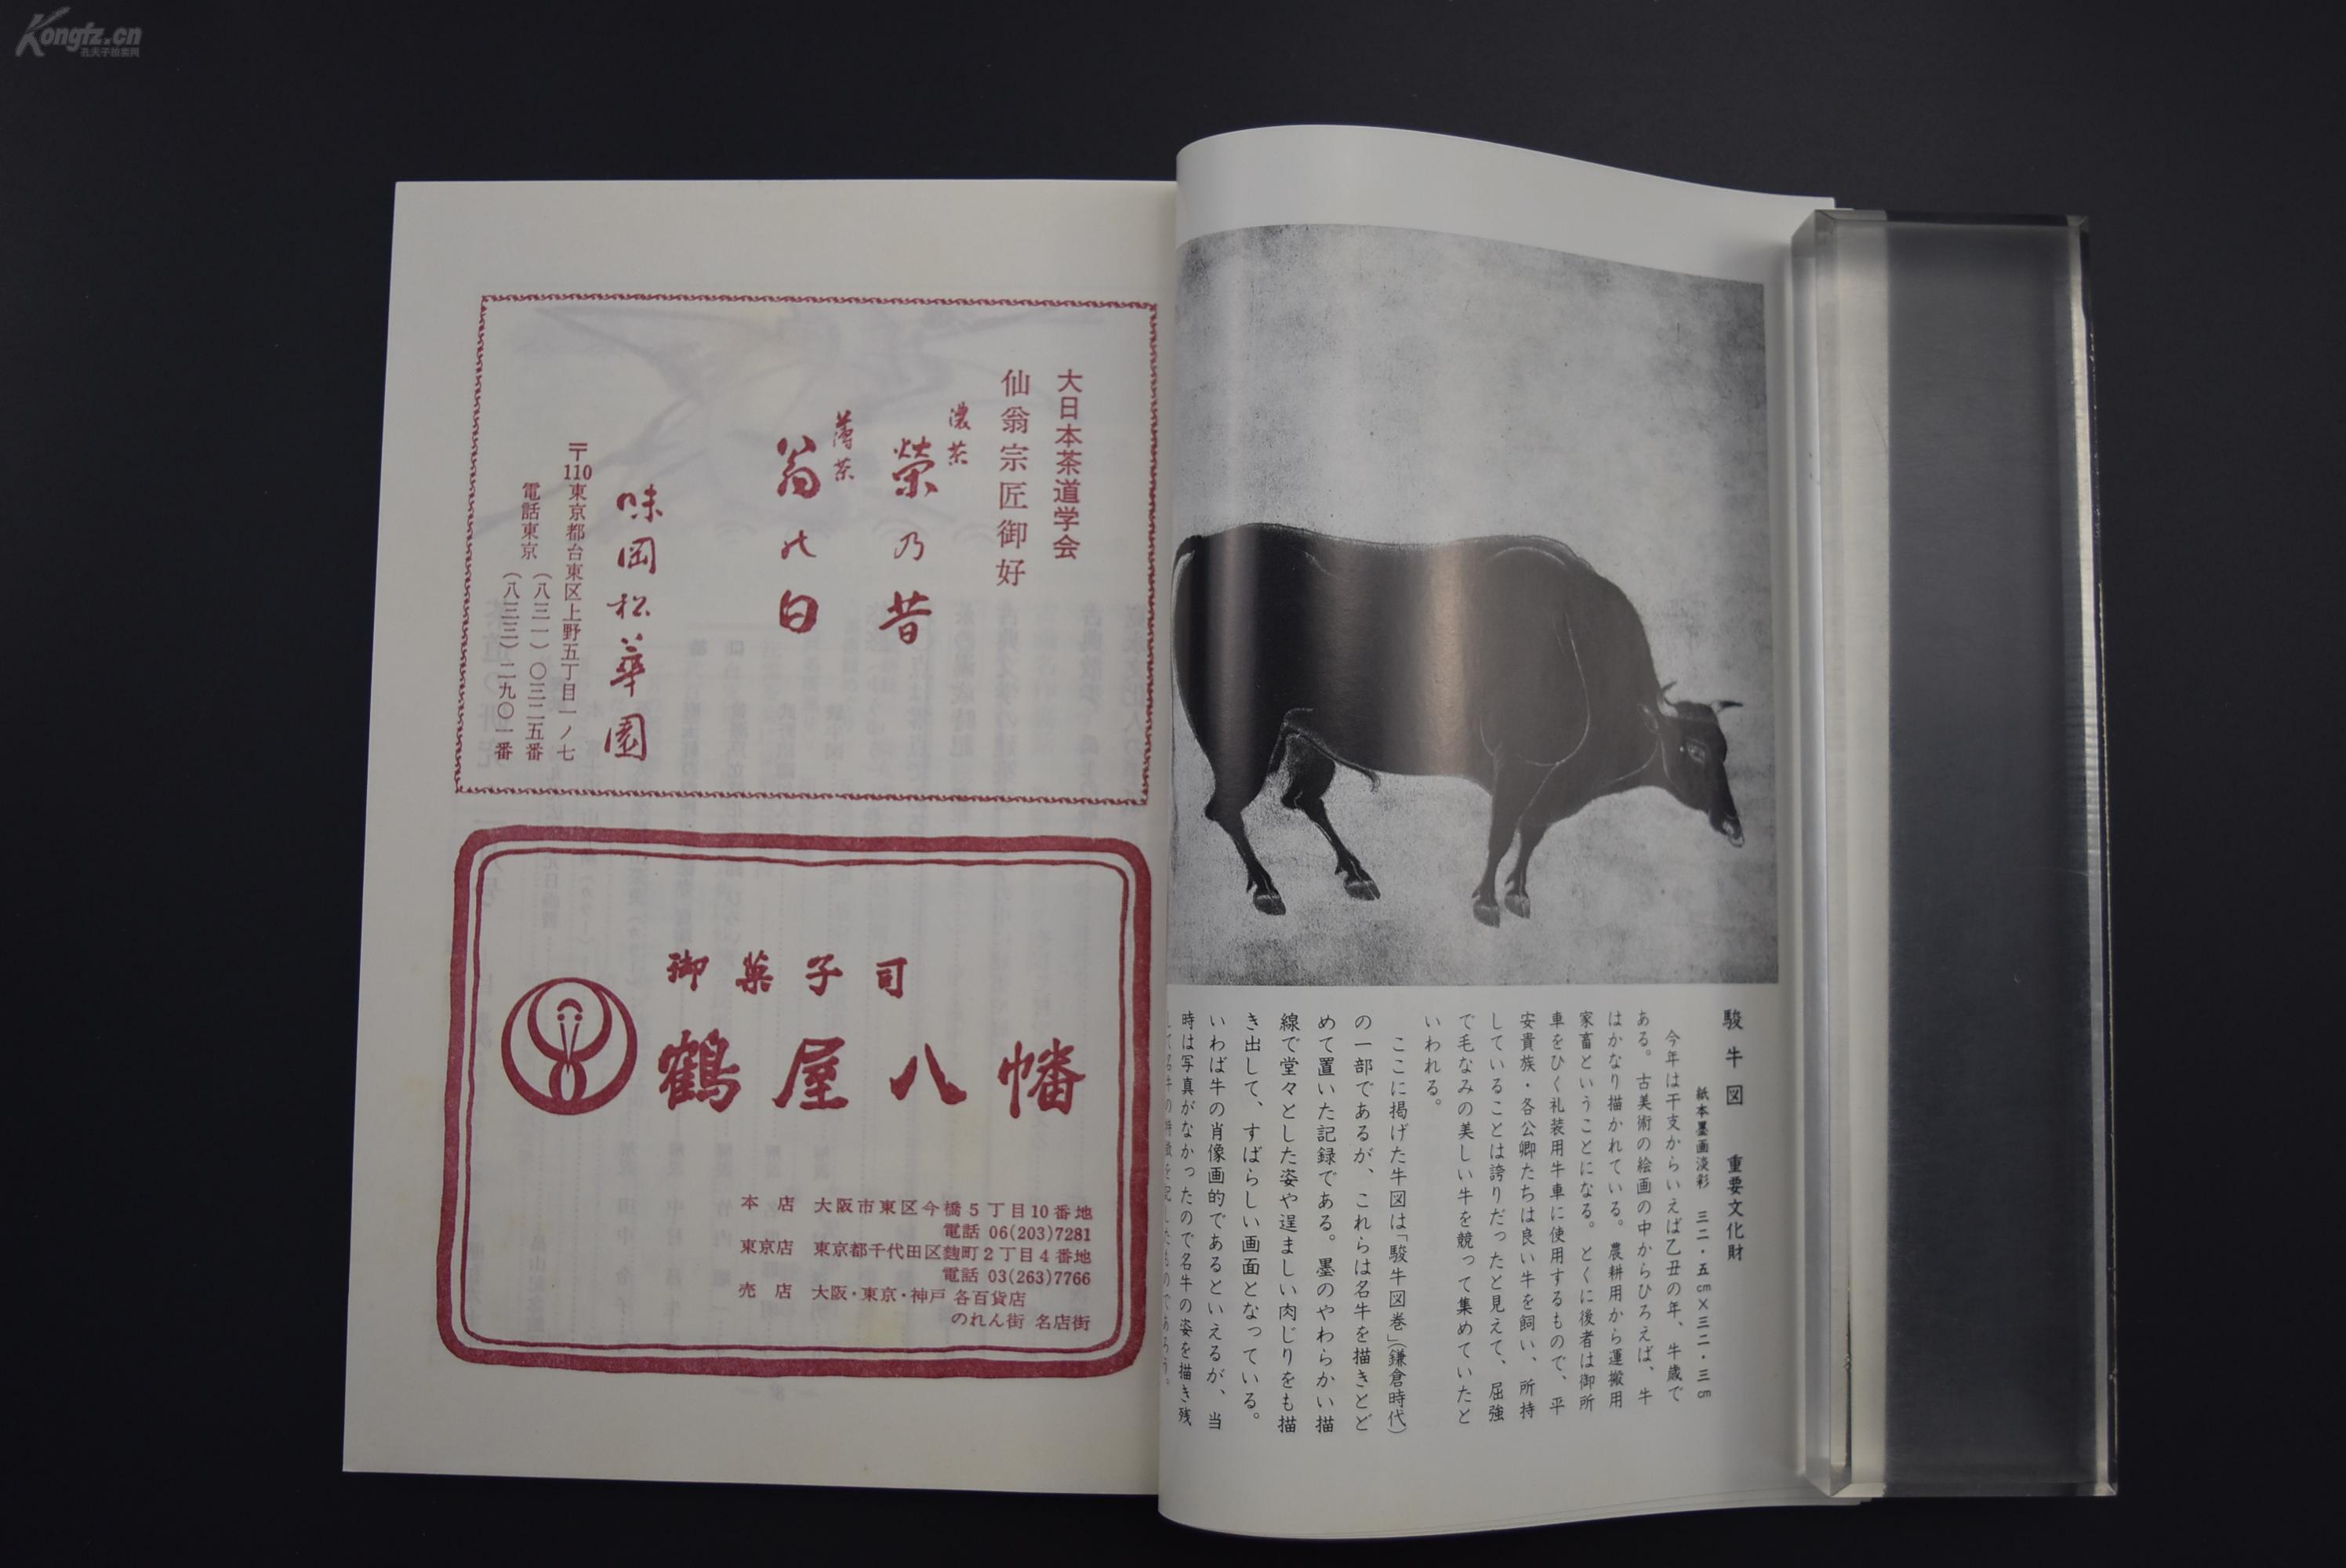 Kongfz.cn
孔夫子拍卖网
駿牛図　重要文化財
紙本墨画淡彩　三二・五㎝×三二・三㎝
今年は干支からいえば乙丑の年、牛歳で
ある。古美術の絵画の中からひろえば、牛
はかなり描かれている。農耕用から運搬用
家畜ということになる。とくに後者は御所
車をひく礼装用牛車に使用するもので、平
安貴族・各公卿たちは良い牛を飼い、所持
していることは誇りだったと見えて、屈強
で毛なみの美しい牛を競って集めていたと
いわれる。
ここに掲げた牛図は「駿牛図巻」(鎌倉時代)
の一部であるが、これらは名牛を描きとど
めて置いた記録である。墨のやわらかい描
線で堂々とした姿や逞ましい肉じりをも描
き出して、すばらしい画面となっている。
いわば牛の肖像画的であるといえるが、当
時は写真がなかったので名牛の姿を描き残
して名牛の特徴を記したものであろう。
大日本茶道学会
仙翁宗匠御好
濃茶
榮乃昔
薄茶
翁の白
味岡松華園
〒110東京都台東区上野五丁目一ノ七
電話東京（八三一）〇三二五番
（八三三）二九〇一番
御菓子司
鶴屋八幡
本店　大阪市東区今橋5丁目10番地
電話 06(203)7281
東京店　東京都千代田区麹町2丁目4番地
電話 03(263)7766
売店　大阪・東京・神戸 各百貨店
のれん街 名店街